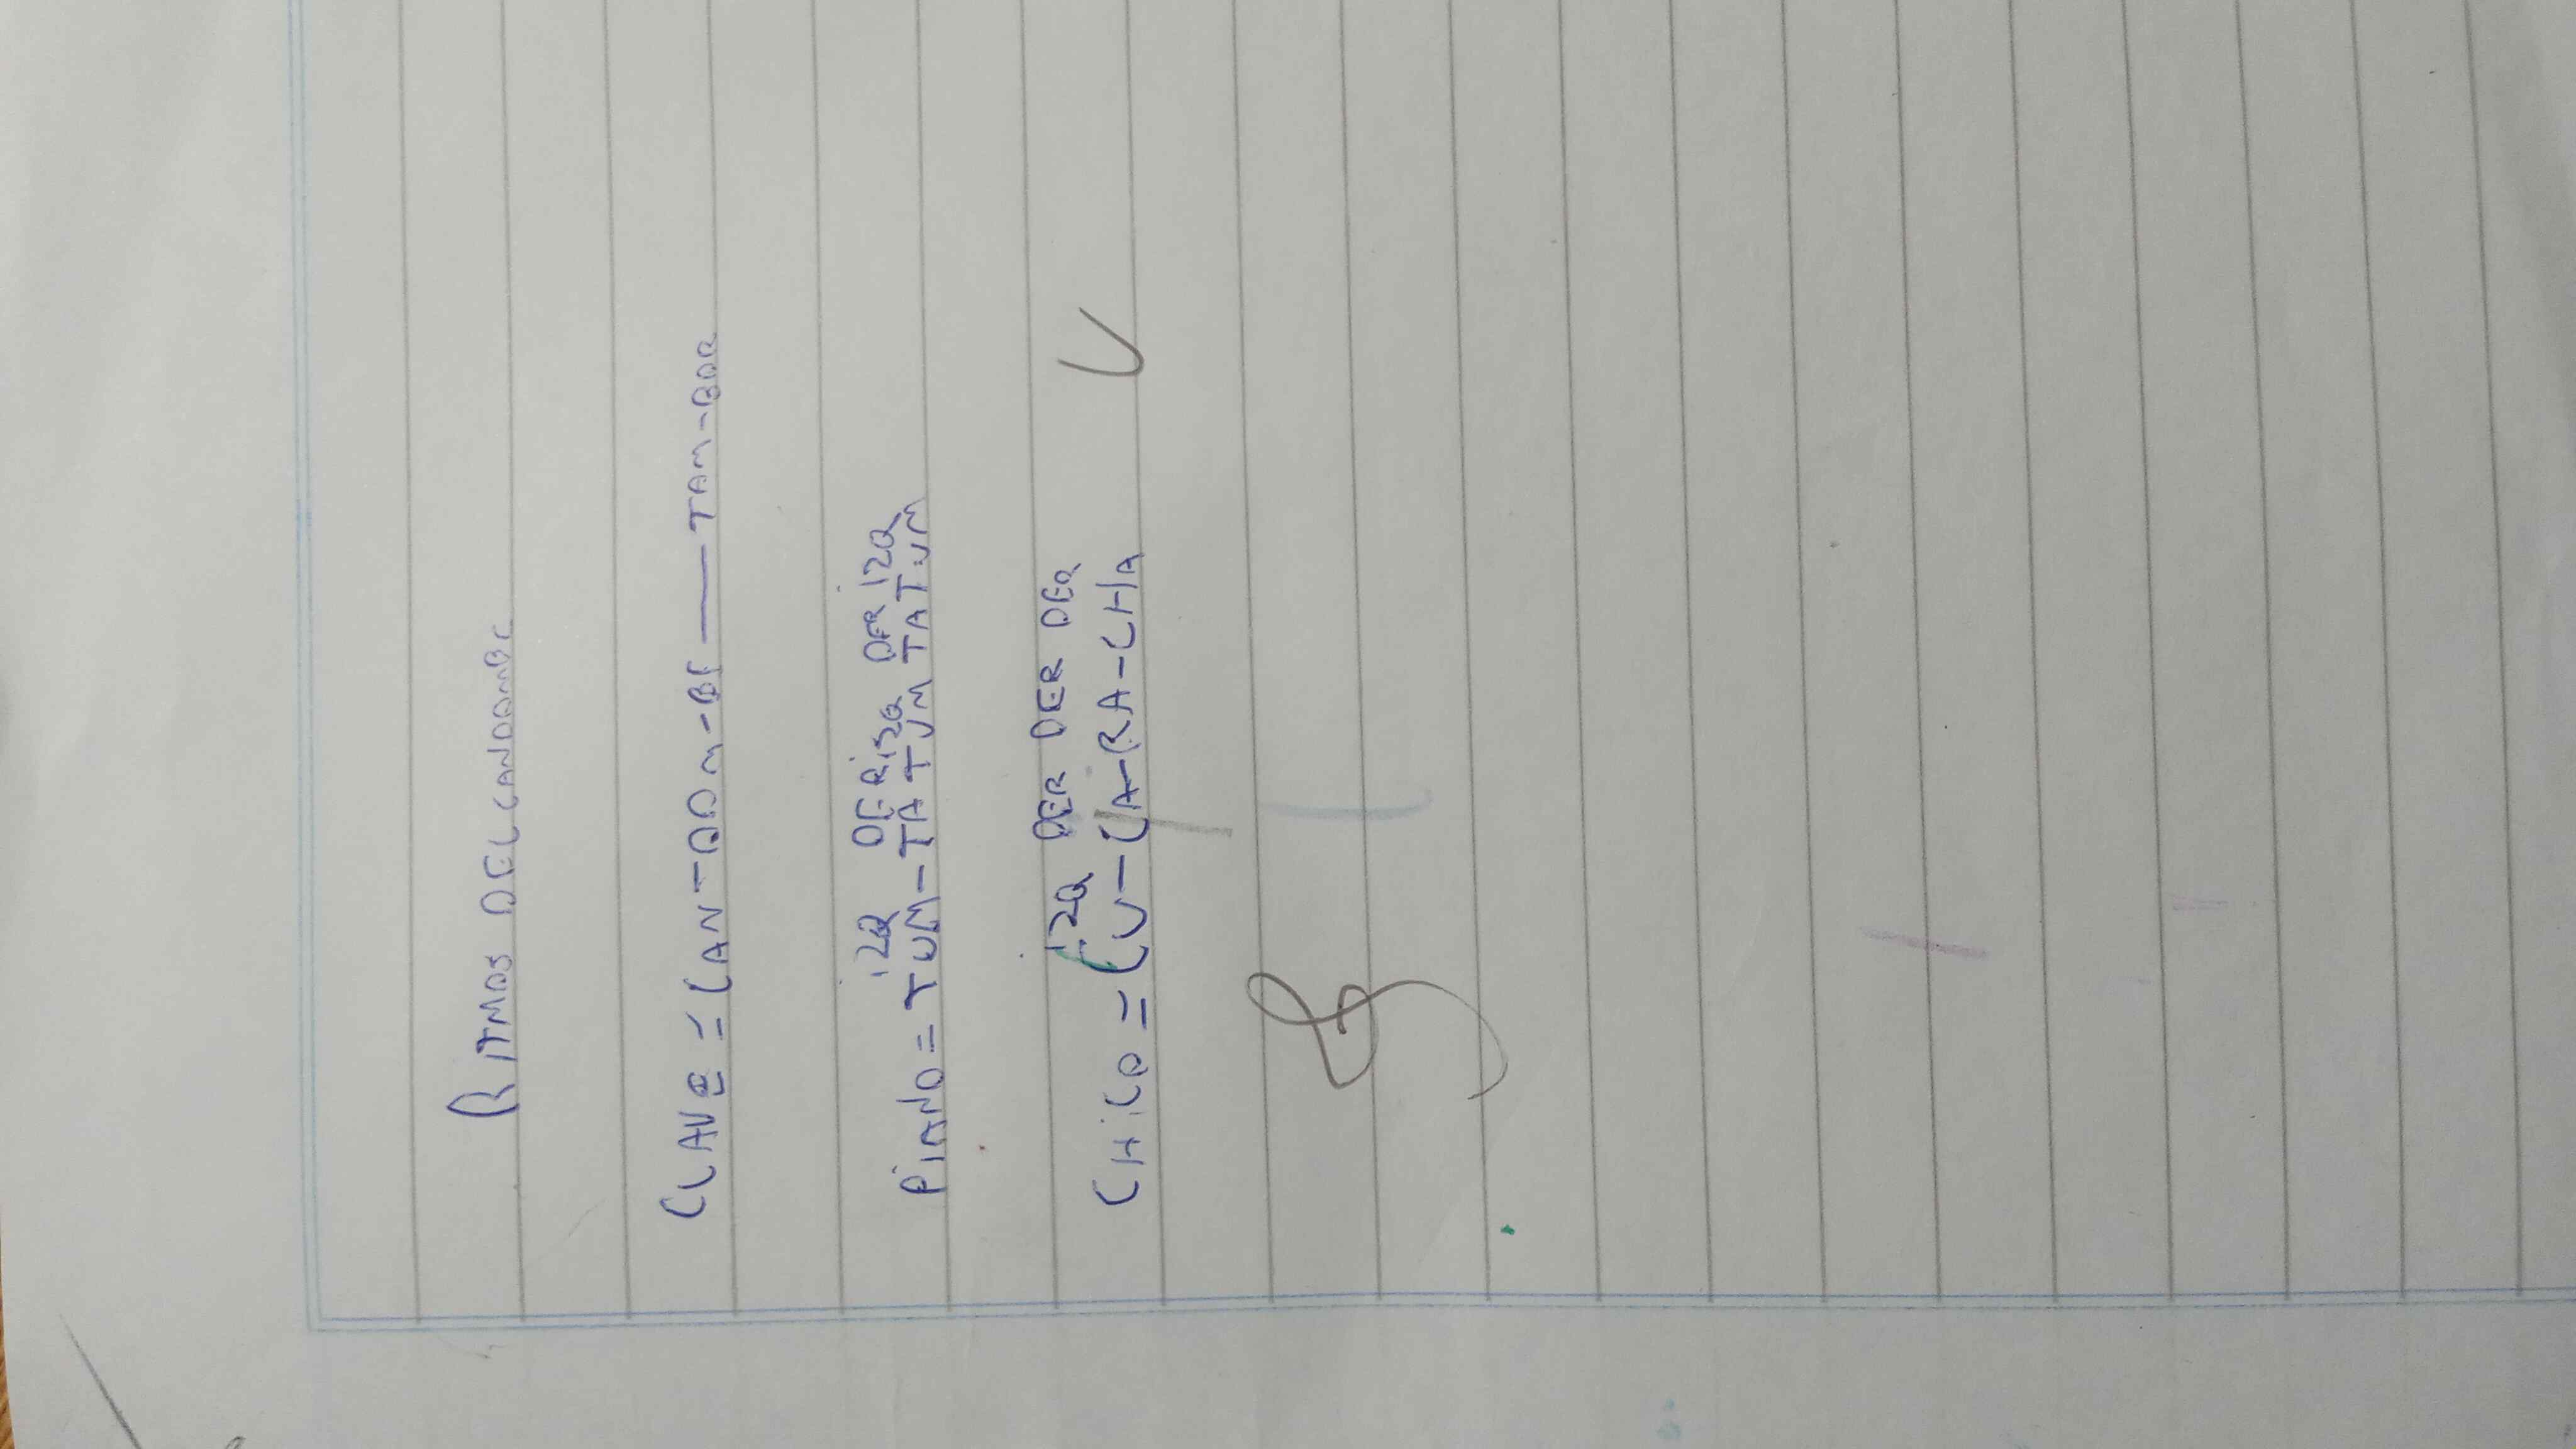 RITMOS DEL CANDOMBE
CLAVE = CAN-DOM-BE — TAM-BOR
IZQ DER ISQ DER IZQ
PIANO = TUM-TA TUM TA TUM
IZQ DER DER DER
CHICO = CU-CA-RA-CHA